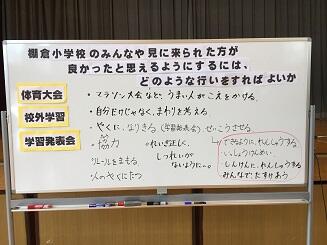 棚倉小学校のみんなや見に来られた方が
良かったと思えるようにするには、
どのような行いをすればよいか
体育大会
・マラソン大会など、うまい人がこえをかける。
校外学習
・自分だけじゃなく、まわりを考える
・やくに、なりきる（学習発表会）せいこうさせる
学習発表会
・協力
・れいぎ正しく、
しつれいが
ないように。
・ルールをまもる
・人のやくにたつ
・できるように、れんしゅうする
・いっしょうけんめい
・しんけんに、れんしゅうする
みんなでたすけあう